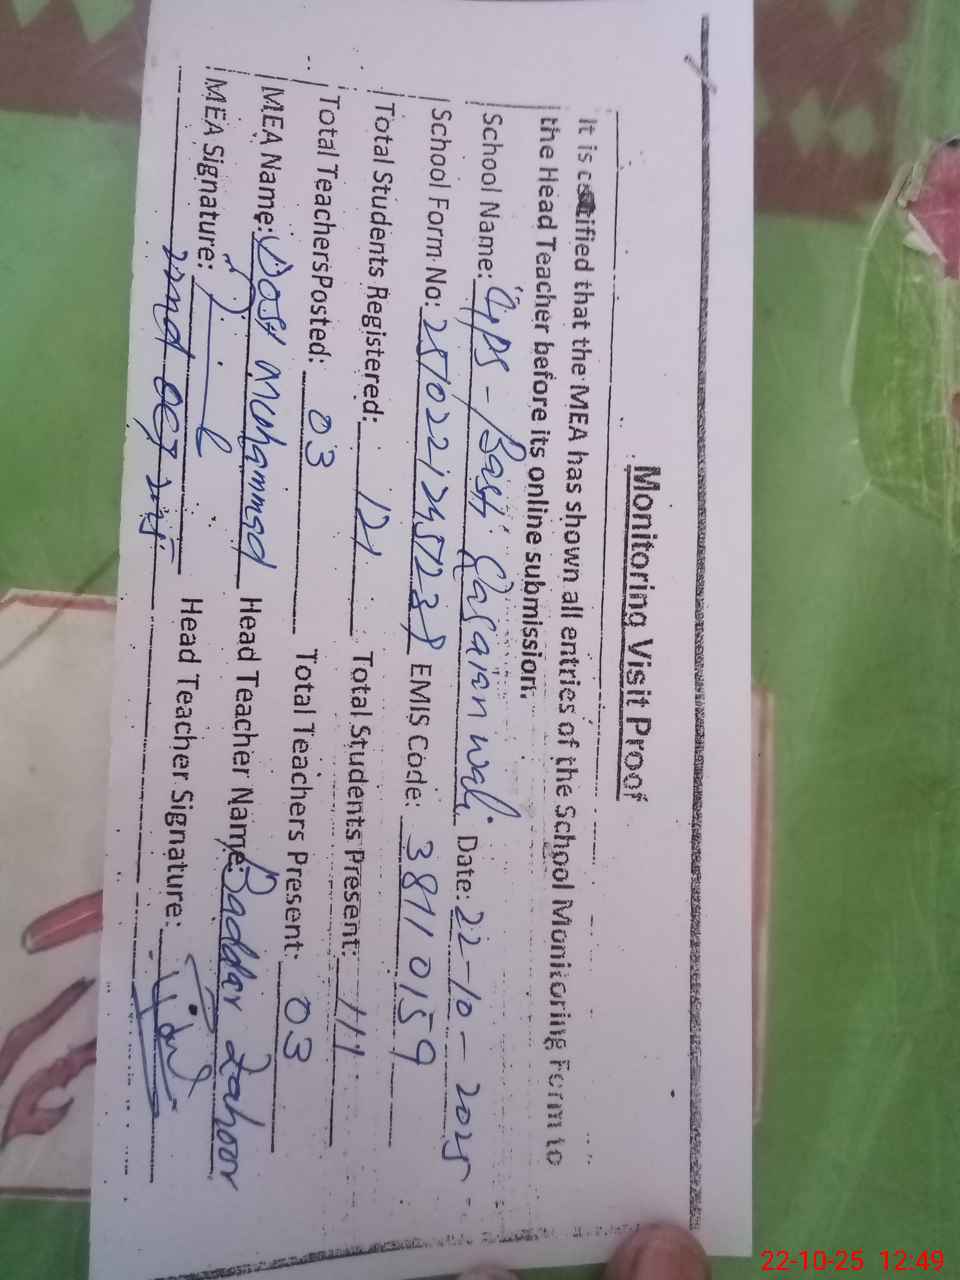 Monitoring Visit Proof
It is certified that the MEA has shown all entries of the School Monitoring Form to
the Head Teacher before its online submission.
School Name: GPS - Basti Qasaian wali Date: 22-10-2025
School Form No: EMIS Code: 38110159
Total Students Registered: 121 Total Students Present: 111
Total Teachers Posted: 03 Total Teachers Present: 03
MEA Name: Dost Muhammad Head Teacher Name: Baddar Zahoor
MEA Signature: Head Teacher Signature:
22nd OCT 2025
22-10-25 12:49